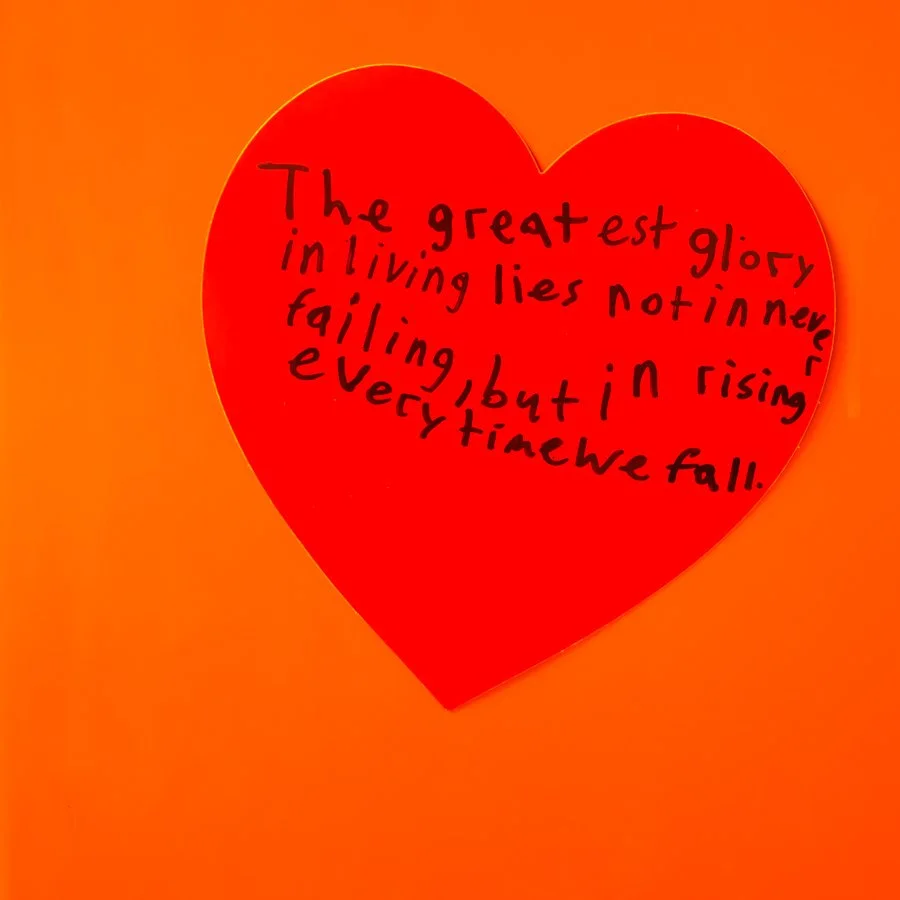 The greatest glory
in living lies not in never
failing, but in rising
every time we fall.